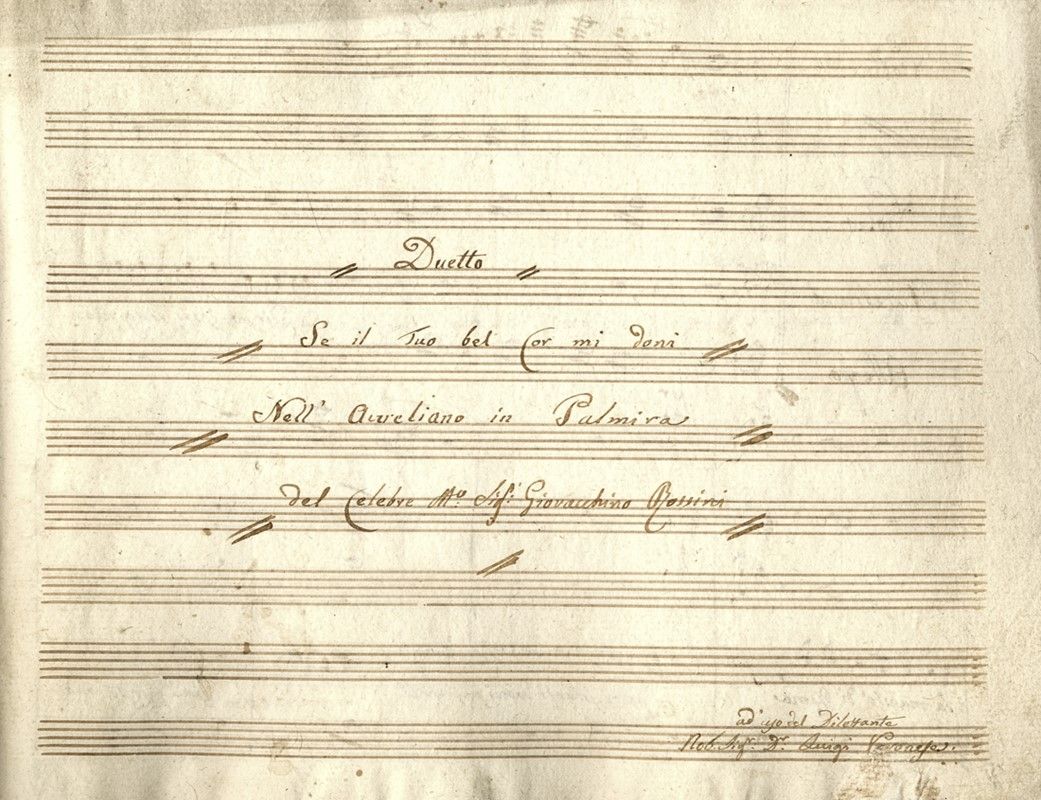 Duetto
Se il Tuo bel Cor mi doni
Nell' Aureliano in Palmira
del Celebre Mo. Sigr. Giovacchino Rossini
ad' uso del Dilettante
Nob. Sigr. Dr. Luigi Veronese.